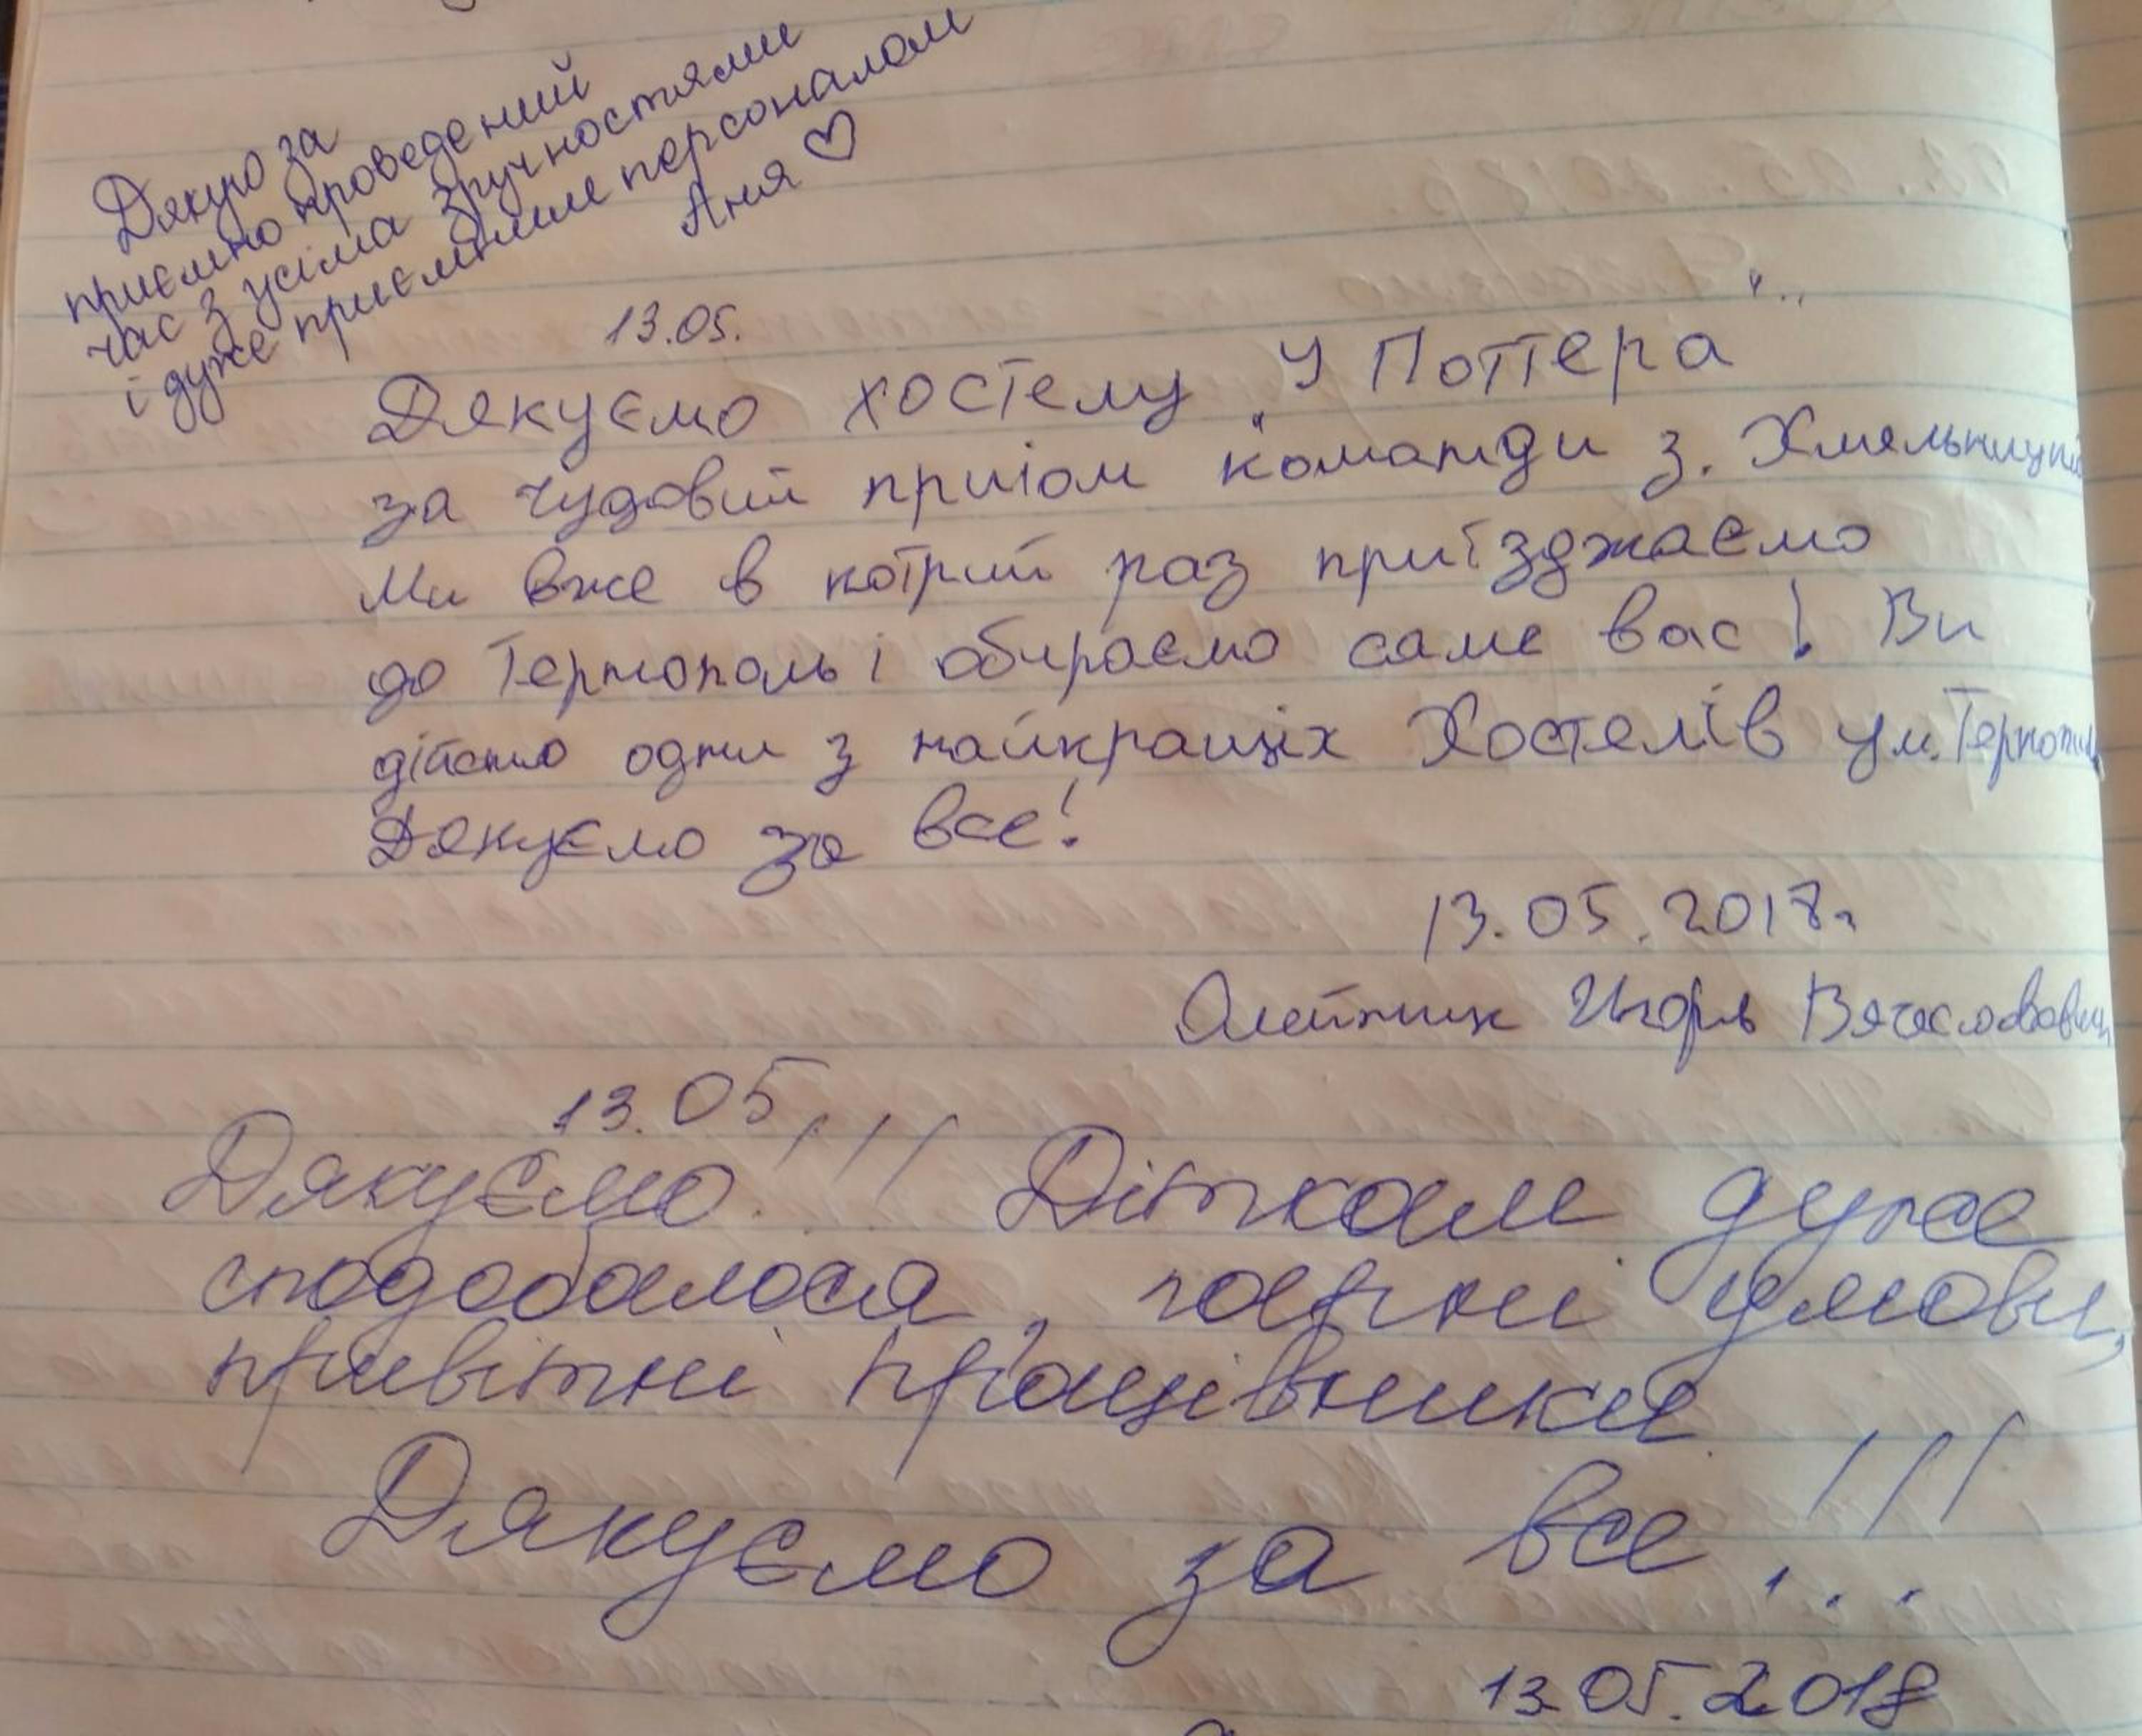 Дякую за
приємно проведений
час з усіма зручностями
і дуже приємним персоналом
Аня ♡
13.05.
Дякуємо хостелу "У Поттера"..
за чудовий приіом команди з. Хмельницьк
Ми вже в котрий раз приїзджаємо
до Тернополь і обираємо саме вас! Ви
дійсно одни з найкращіх Хостелів у м. Тернопіль
Дякуємо за все!
13.05.2018г.
Олейник Игорь Вячеславович
13.05
Дякуємо!!! Діткам дуже
сподобалося, гарні умови,
привітні працівники
Дякуємо за все!!!
13.05.2018